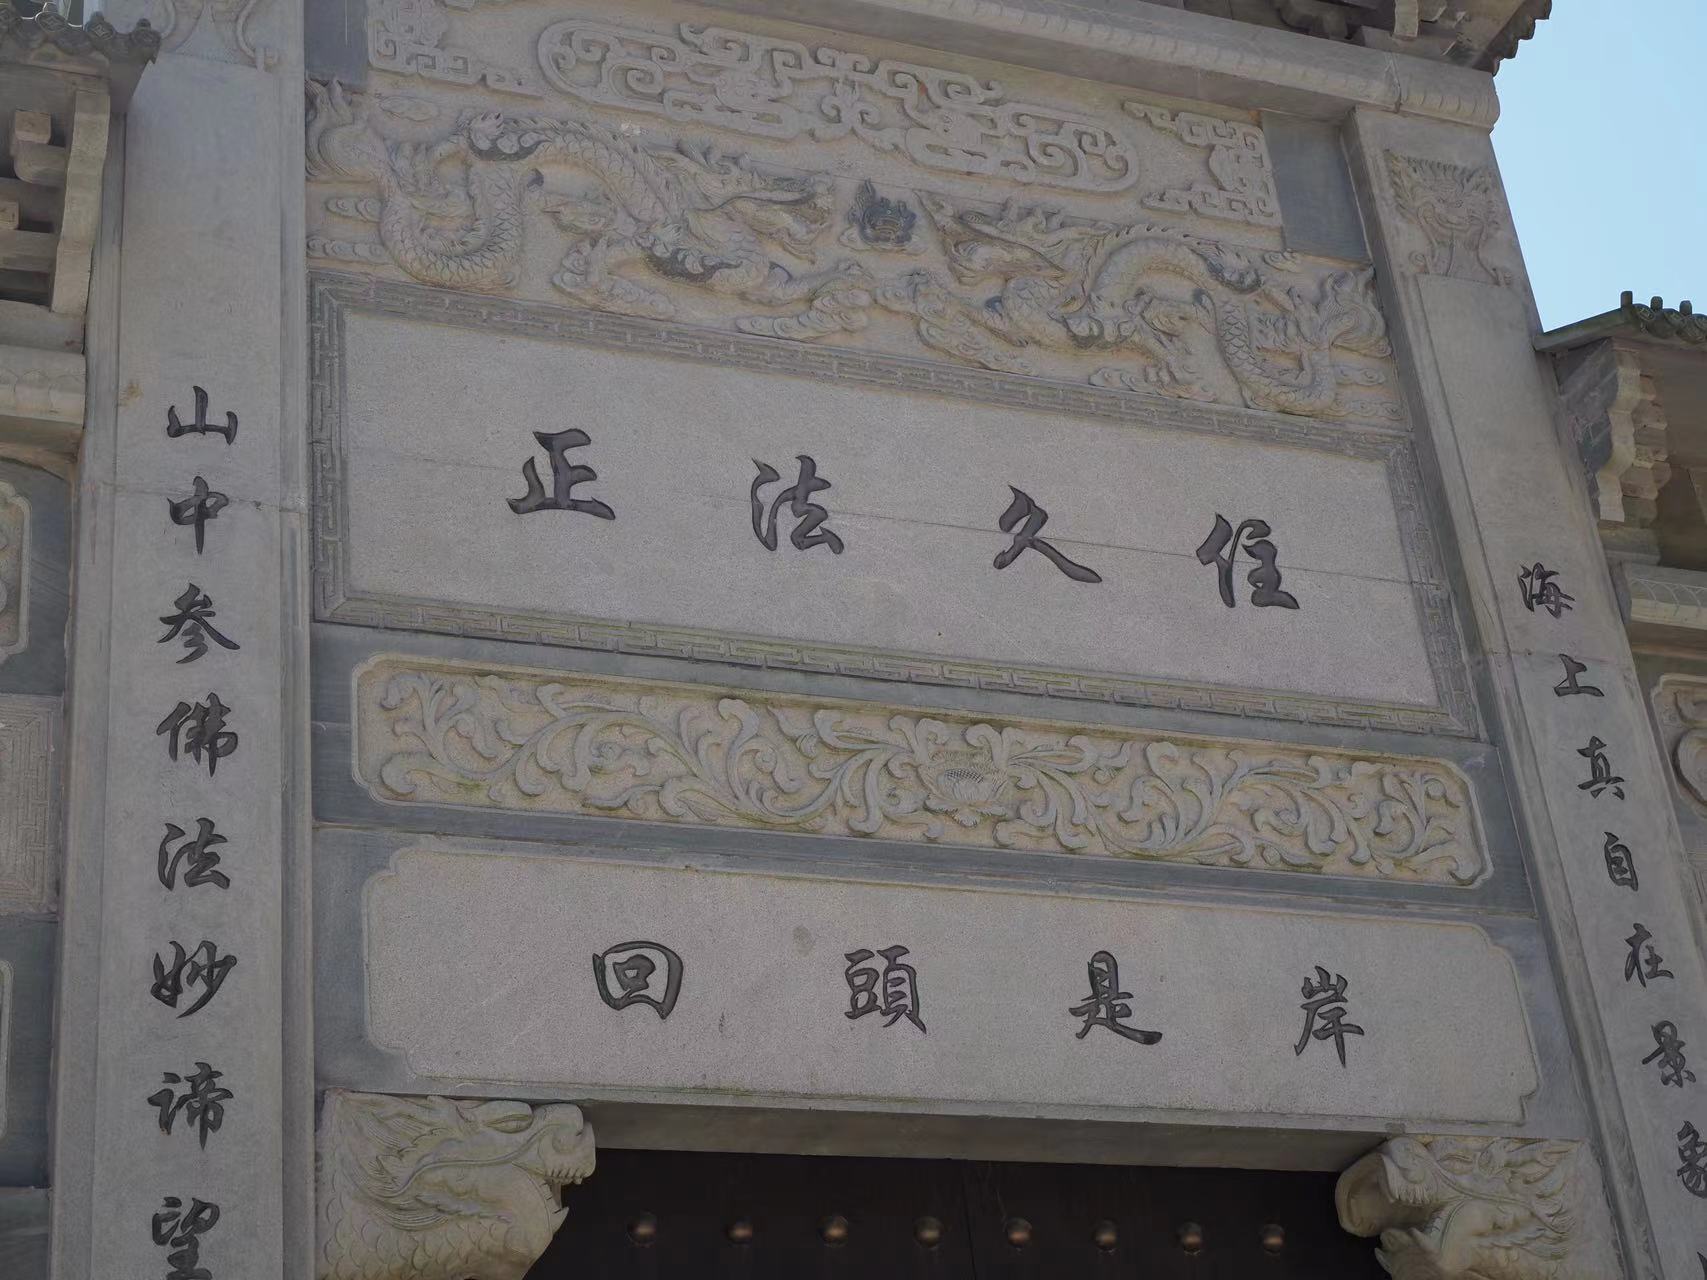 正法久住
回頭是岸
山中参佛法妙諦望
海上真自在景象